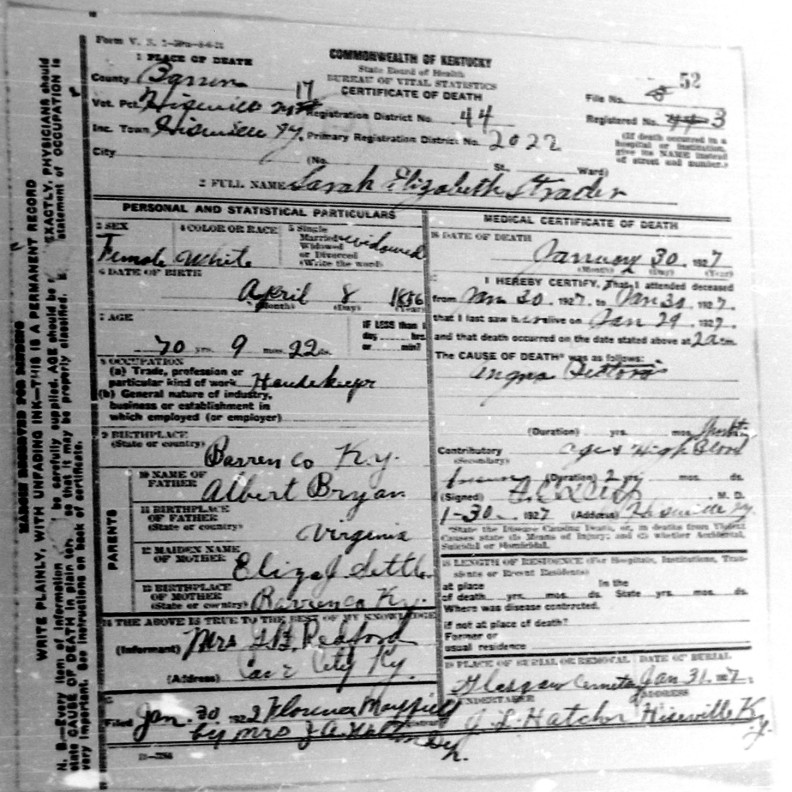 Form V. S.
COMMONWEALTH OF KENTUCKY
State Board of Health
BUREAU OF VITAL STATISTICS
CERTIFICATE OF DEATH
52
1 PLACE OF DEATH
County Barren 17
File No.
Vot. Pct. Hiseville Registration District No. 44
Registered No. 3
Inc. Town Hiseville Ky. Primary Registration District No. 2022
(If death occurred in a
hospital or institution,
give its NAME instead
of street and number.)
City (No. St. Ward)
2 FULL NAME Sarah Elizabeth Strader
PERSONAL AND STATISTICAL PARTICULARS
3 SEX
Female
4 COLOR OR RACE
White
5 Single
Married
Widowed
or Divorced
(Write the word)
widowed
6 DATE OF BIRTH
April 8 1856
(Month) (Day) (Year)
7 AGE
70 yrs. 9 mos. 22 ds.
IF LESS than 1
day, hrs.
or min?
8 OCCUPATION
(a) Trade, profession or
particular kind of work
(b) General nature of industry,
business or establishment in
which employed (or employer)
9 BIRTHPLACE
(State or country)
Barren Co Ky.
PARENTS
10 NAME OF
FATHER
Albert Bryan
11 BIRTHPLACE
OF FATHER
(State or country)
Virginia
12 MAIDEN NAME
OF MOTHER
Eliza J. Settle
13 BIRTHPLACE
OF MOTHER
(State or country)
Barren Co Ky.
14 THE ABOVE IS TRUE TO THE BEST OF MY KNOWLEDGE
(Informant) Mrs Redford
(Address) Cave City Ky.
15
Filed Jan. 30 192 Florence Mayfield
by Mrs
MEDICAL CERTIFICATE OF DEATH
16 DATE OF DEATH
January 30 1927
(Month) (Day) (Year)
17 I HEREBY CERTIFY, That I attended deceased
from Jan 30 1927, to Jan 30 1927,
that I last saw her alive on Jan 29 1927,
and that death occurred on the date stated above at 2 a m.
The CAUSE OF DEATH was as follows:
Angina Pectoris
(Duration) yrs. mos.
Contributory age & High Blood
(Secondary)
(Duration) 2 yrs. mos. ds.
(Signed) M. D.
1-30 1927 (Address) Hiseville Ky.
*State the Disease Causing Death, or, in deaths from Violent
Causes state (1) Means of Injury; and (2) whether Accidental,
Suicidal or Homicidal.
18 LENGTH OF RESIDENCE (For Hospitals, Institutions, Tran-
sients or Recent Residents)
at place In the
of death yrs. mos. ds. State yrs. mos. ds.
Where was disease contracted,
if not at place of death?
Former or
usual residence
19 PLACE OF BURIAL OR REMOVAL DATE OF BURIAL
Glasgow Cemetery Jan 31 1927
20 UNDERTAKER ADDRESS
J. L. Hatcher Hiseville Ky.
MARGIN RESERVED FOR BINDING
WRITE PLAINLY, WITH UNFADING INK—THIS IS A PERMANENT RECORD
N. B.—Every item of information be carefully supplied. AGE should be EXACTLY. PHYSICIANS should
state CAUSE OF DEATH in plain so that it may be properly classified. statement of OCCUPATION is
very important. See instructions on back of certificate.